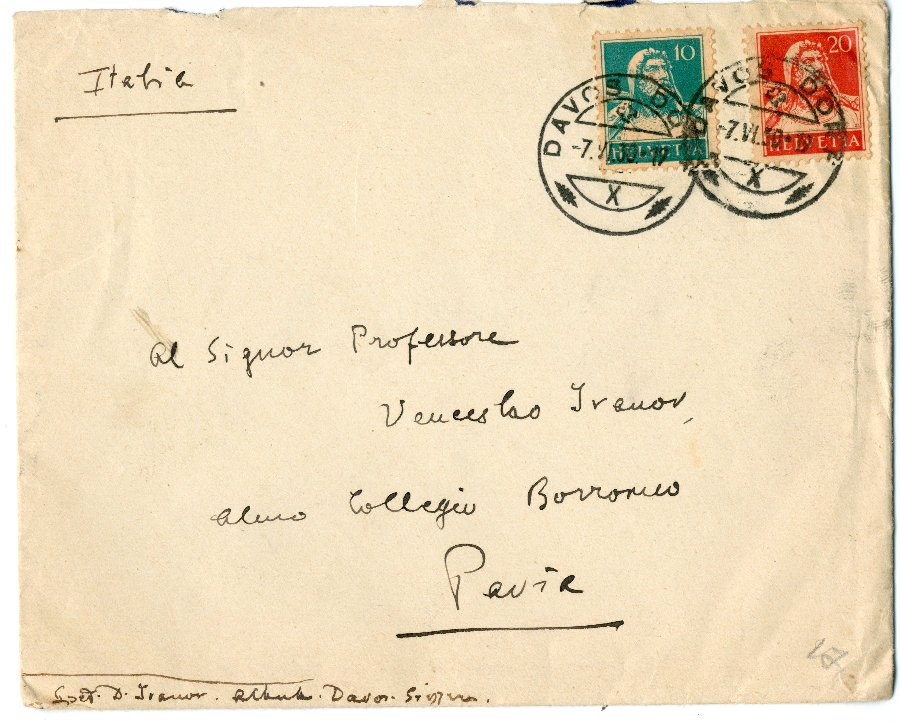 Italia
10
HELVETIA
20
HELVETIA
DAVOS DORF
-7.VI.30
X
DAVOS DORF
-7.VI.30
X
Al Signor Professore
Venceslao Ivanov,
Almo Collegio Borromeo
Pavia
D. Ivanov. Davos.